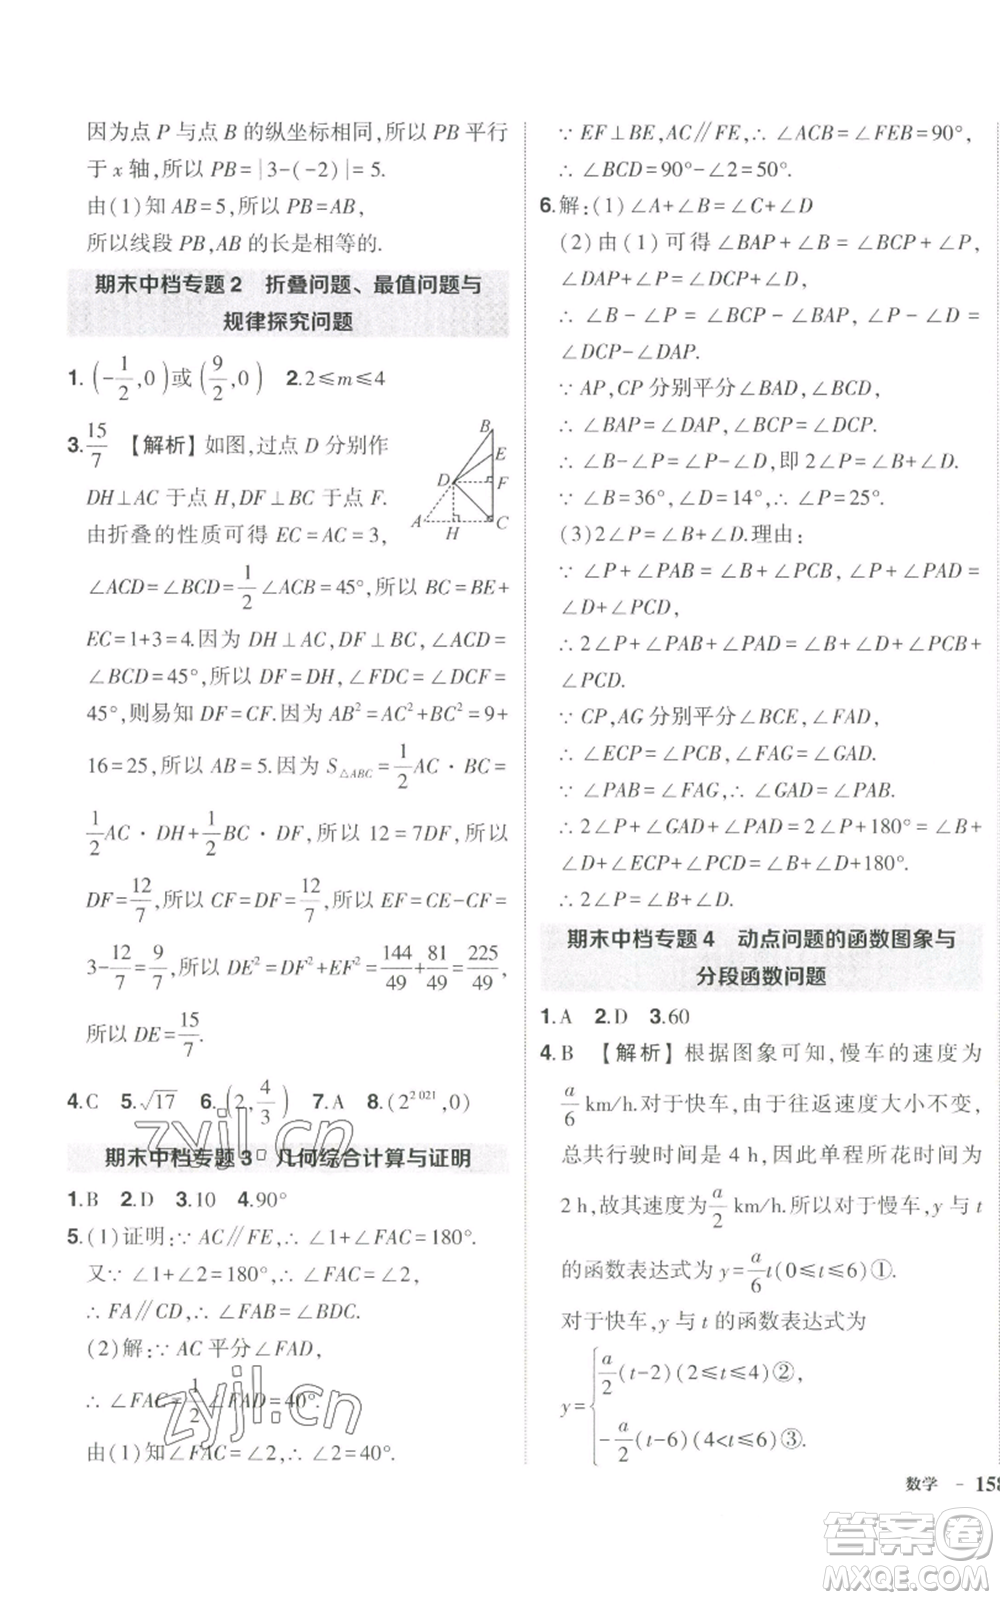 因为点 P 与点 B 的纵坐标相同,所以 PB 平行
于 x 轴,所以 PB=|3-(-2)|=5.
由(1)知 AB=5,所以 PB=AB,
所以线段 PB,AB 的长是相等的.
期末中档专题2 折叠问题、最值问题与
规律探究问题
1. (-1/2,0)或(9/2,0) 2.2≤m≤4
3. 15/7 【解析】如图,过点 D 分别作
DH⊥AC 于点 H,DF⊥BC 于点 F.
由折叠的性质可得 EC=AC=3,
∠ACD=∠BCD=1/2∠ACB=45°,所以 BC=BE+
EC=1+3=4.因为 DH⊥AC,DF⊥BC,∠ACD=
∠BCD=45°,所以 DF=DH,∠FDC=∠DCF=
45°,则易知 DF=CF.因为 AB²=AC²+BC²=9+
16=25,所以 AB=5.因为 S△ABC=1/2AC·BC=
1/2AC·DH+1/2BC·DF,所以 12=7DF,所以
DF=12/7,所以 CF=DF=12/7,所以 EF=CE-CF=
3-12/7=9/7,所以 DE²=DF²+EF²=144/49+81/49=225/49,
所以 DE=15/7.
B
E
D
F
A
H
C
4.C 5.√17 6.(2,4/3) 7.A 8.(2^2 021,0)
期末中档专题3 几何综合计算与证明
1.B 2.D 3.10 4.90°
5.(1)证明:∵AC∥FE,∴∠1+∠FAC=180°.
又∵∠1+∠2=180°,∴∠FAC=∠2,
∴FA∥CD,∴∠FAB=∠BDC.
(2)解:∵AC 平分∠FAD,
∴∠FAC=1/2∠FAD=40°.
由(1)知∠FAC=∠2,∴∠2=40°.
∵EF⊥BE,AC∥FE,∴∠ACB=∠FEB=90°,
∴∠BCD=90°-∠2=50°.
6.解:(1)∠A+∠B=∠C+∠D
(2)由(1)可得∠BAP+∠B=∠BCP+∠P,
∠DAP+∠P=∠DCP+∠D,
∴∠B-∠P=∠BCP-∠BAP,∠P-∠D=
∠DCP-∠DAP.
∵AP,CP 分别平分∠BAD,∠BCD,
∴∠BAP=∠DAP,∠BCP=∠DCP,
∴∠B-∠P=∠P-∠D,即 2∠P=∠B+∠D.
∵∠B=36°,∠D=14°,∴∠P=25°.
(3)2∠P=∠B+∠D.理由:
∵∠P+∠PAB=∠B+∠PCB,∠P+∠PAD=
∠D+∠PCD,
∴2∠P+∠PAB+∠PAD=∠B+∠D+∠PCB+
∠PCD.
∵CP,AG 分别平分∠BCE,∠FAD,
∴∠ECP=∠PCB,∠FAG=∠GAD.
∵∠PAB=∠FAG,∴∠GAD=∠PAB.
∴2∠P+∠GAD+∠PAD=2∠P+180°=∠B+
∠D+∠ECP+∠PCD=∠B+∠D+180°.
∴2∠P=∠B+∠D.
期末中档专题4 动点问题的函数图象与
分段函数问题
1.A 2.D 3.60
4.B 【解析】根据图象可知,慢车的速度为
a/6 km/h.对于快车,由于往返速度大小不变,
总共行驶时间是 4 h,因此单程所花时间为
2 h,故其速度为 a/2 km/h.所以对于慢车,y 与 t
的函数表达式为 y=a/6t(0≤t≤6)①.
对于快车,y 与 t 的函数表达式为
y={a/2(t-2)(2≤t≤4)②,
-a/2(t-6)(4<t≤6)③.
数学 - 158
zyjl.cn
zyjl.cn
答案卷
MXQE.COM